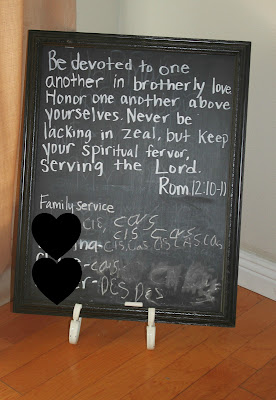 Be devoted to one
another in brotherly love
Honor one another above
yourselves. Never be
lacking in zeal, but keep
your spiritual fervor,
serving the Lord.
Rom. 12:10-11
Family service
cas
cis cas
-cis, Cas, cis
-cas
-DES DES